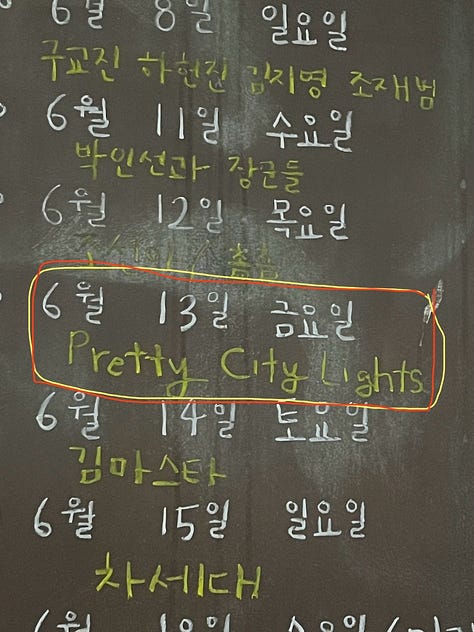 6월 8일 일요일
구교진 하헌진 김지영 조재범
6월 11일 수요일
박인선과 장군들
6월 12일 목요일
6월 13일 금요일
Pretty City Lights
6월 14일 토요일
김마스타
6월 15일 일요일
차세대
6월 18일 수요일